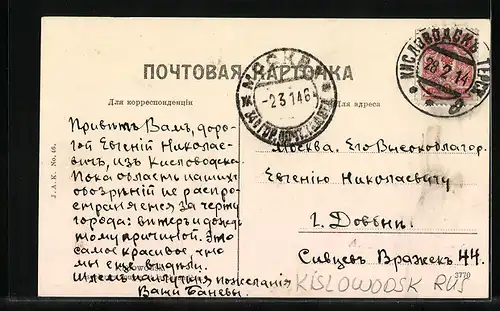 ПОЧТОВАЯ КАРТОЧКА
КИСЛОВОДСКЪ ТЕРСК
28 2 14
МОСКВА
-2 3 14 6
Для корреспонденціи
Для адреса
Привѣтъ Вамъ, доро-
гой Евгеній Николае-
вичъ, изъ Кисловодска.
Пока область нашихъ
обозрѣній не распро-
страняется за черту
города: вѣтеръ и дождь
тому причиной. Это
самое красивое, что
мы еще видѣли.
Шлемъ наилучшія пожеланія
Ваши
Москва. Его Высокоблагор.
Евгенію Николаевичу
г.
Сивцевъ Вражекъ 44.
J. A. K. No. 46.
3770
KISLOWODSK RUS